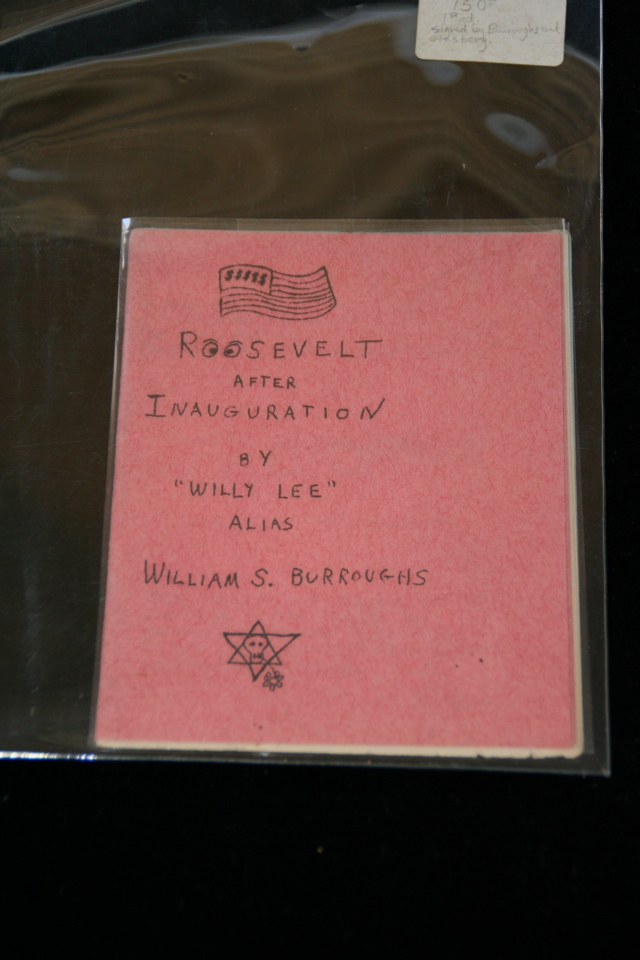 150-
1st ed.
signed by Burroughs and
Ginsberg.
$$$$$
ROOSEVELT
AFTER
INAUGURATION
BY
"WILLY LEE"
ALIAS
WILLIAM S. BURROUGHS